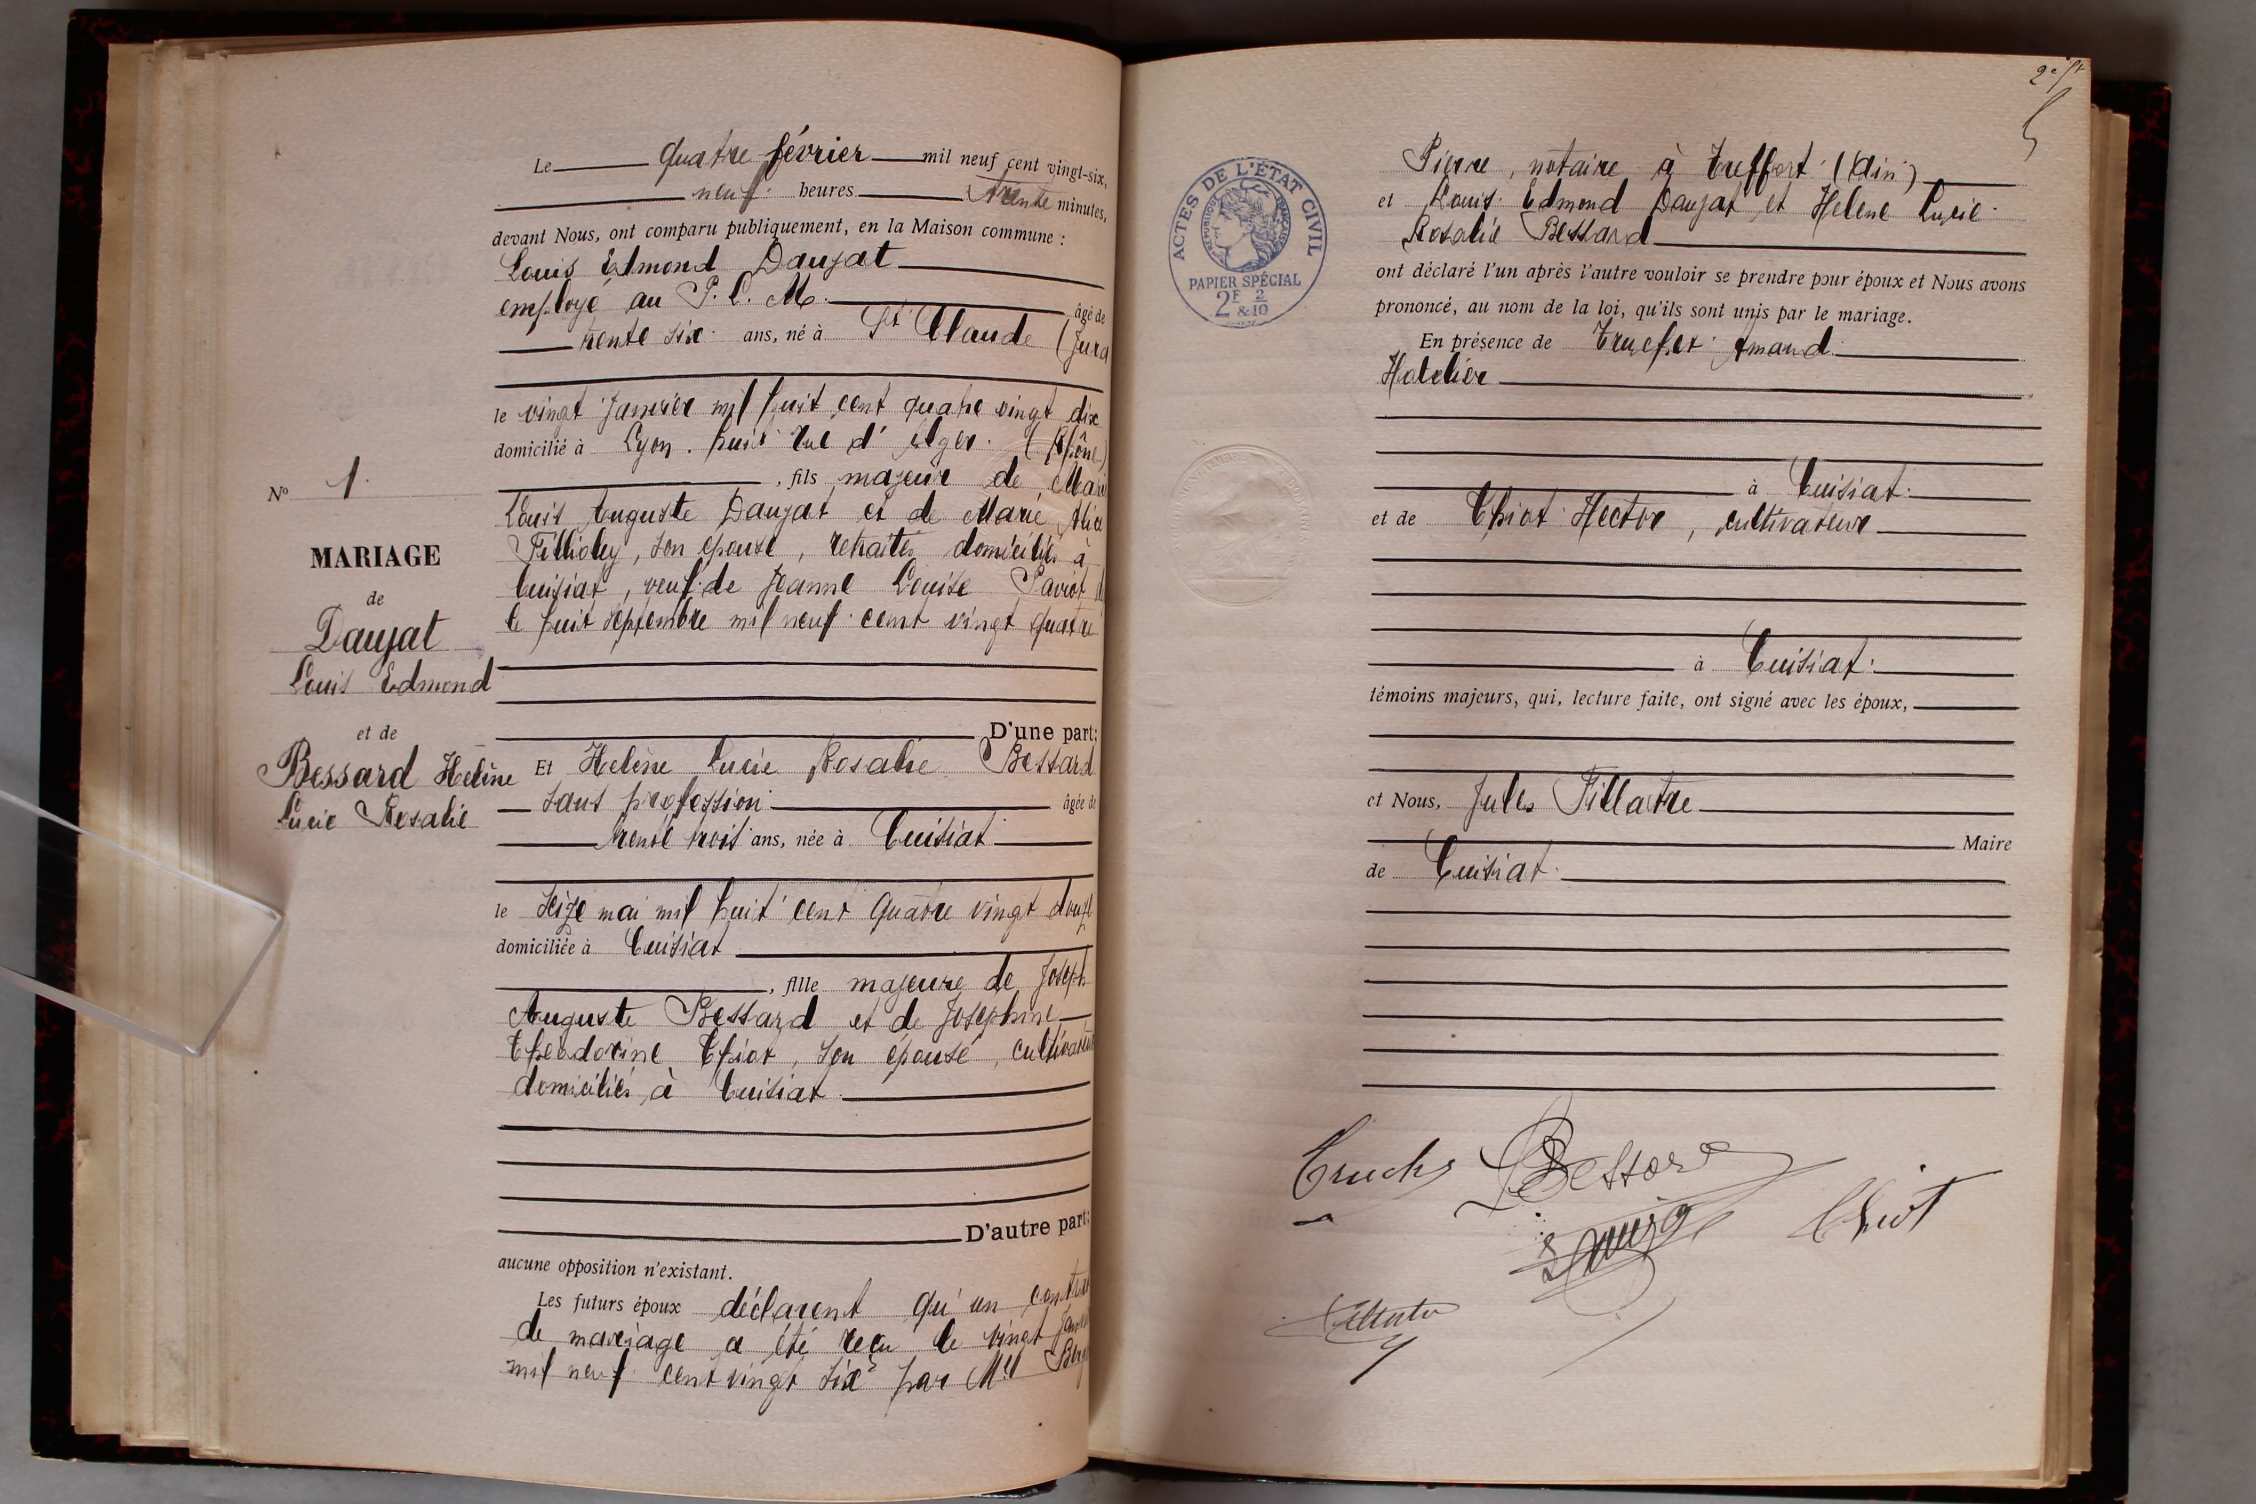 Le quatre février mil neuf cent vingt-six,
neuf heures trente minutes,
devant Nous, ont comparu publiquement, en la Maison commune :
Louis Edmond Daujat
employé au P. L. M. âgé de
trente six ans, né à St Claude (Jura
le vingt janvier mil huit cent quatre vingt dix
domicilié à Lyon. huit rue d'Alger. (Rhône)
, fils majeur de
Louis Auguste Daujat et de Marie Alice
son épouse, retraités domiciliés à
Cuisiat, veuf de Jeanne Louise
le huit septembre mil neuf cent vingt quatre
D'une part;
No 1.
MARIAGE
de
Daujat
Louis Edmond
et de
Bessard Helène
Lucie Rosalie
Et Helène Lucie Rosalie Bessard
sans profession âgée de
trente trois ans, née à Cuisiat
le seize mai mil huit cent quatre vingt douze
domiciliée à Cuisiat
, fille majeure de Joseph
Auguste Bessard et de Josephine
Theodorine Thiot, son épouse, cultivateurs
domiciliés à Cuisiat
D'autre part;
aucune opposition n'existant.
Les futurs époux déclarent qu'un contrat
de mariage a été reçu le vingt
mil neuf cent vingt six par
2e ft
Pierre, notaire à Treffort (Ain)
et Louis Edmond Daujat et Helene Lucie
Rosalie Bessard
ont déclaré l'un après l'autre vouloir se prendre pour époux et Nous avons
prononcé, au nom de la loi, qu'ils sont unis par le mariage.
En présence de Amand
Hotelier
à Cuisiat.
et de Thiot Hector, cultivateur
à Cuisiat.
témoins majeurs, qui, lecture faite, ont signé avec les époux,
et Nous, Jules Fillatre
Maire
de Cuisiat.
ACTES DE L'ÉTAT CIVIL
RÉPUBLIQUE FRANÇAISE
PAPIER SPÉCIAL
2F & 2/10
Bessard
Thiot